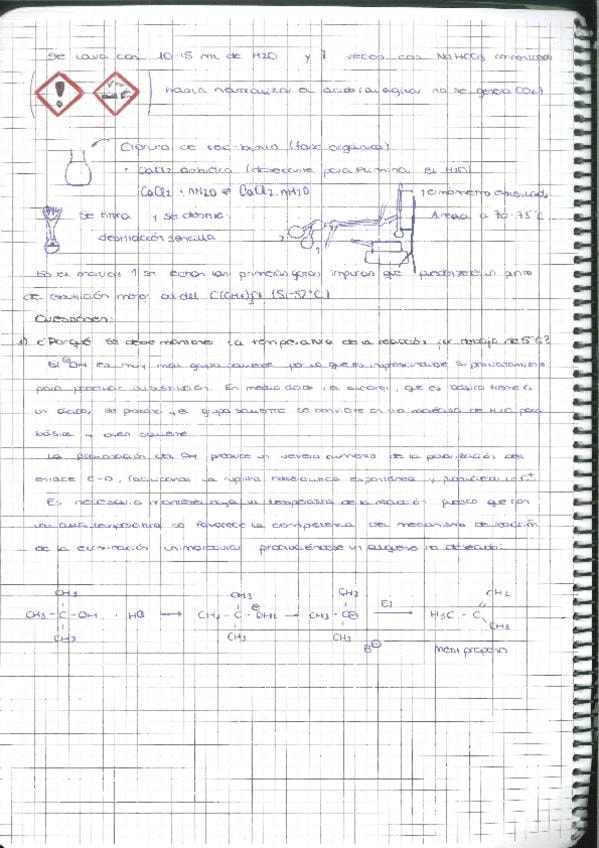 Se lava con 10-15 mL de H2O y 7 veces con NaHCO3
hasta neutralizar el ácido (al agitar no se genera CO2)
Cloruro de sec-butilo (fase orgánica)
CaCl2 anhidro (desecante para eliminar el H2O)
CaCl2 + nH2O ⇌ CaCl2.nH2O
Termómetro
Se filtra y se destila:
destilación sencilla
a 70-75°C
En el matraz 1 se echan las primeras gotas impuras que un punto
de ebullición menor al del (51-52°C)
Cuestiones:
1) ¿Por qué se debe mantener la temperatura de la reacción por debajo de 5°C?
El ⊖OH es muy mal grupo saliente por lo que es imprescindible su
para producir sustitución. En medio ácido, el alcohol, que es básico frente a
un ácido, se protona y el grupo saliente se convierte en una molécula de H2O poco
básica y buen saliente.
La protonación del OH produce un severo aumento de la polarización del
enlace C-O, la ruptura heterolítica espontánea y
Es necesario mantener baja la temperatura de la reacción puesto que con
una alta temperatura se favorece la competencia del mecanismo de
de la eliminación unimolecular produciéndose un alqueno no deseado:
CH3 CH3 CH3 CH2
CH3-C-OH + HCl → CH3-C-⊕OH2 → CH3-C⊕ E1 → H3C-C
CH3 CH3 CH3 B⊖ CH3
Metilpropeno